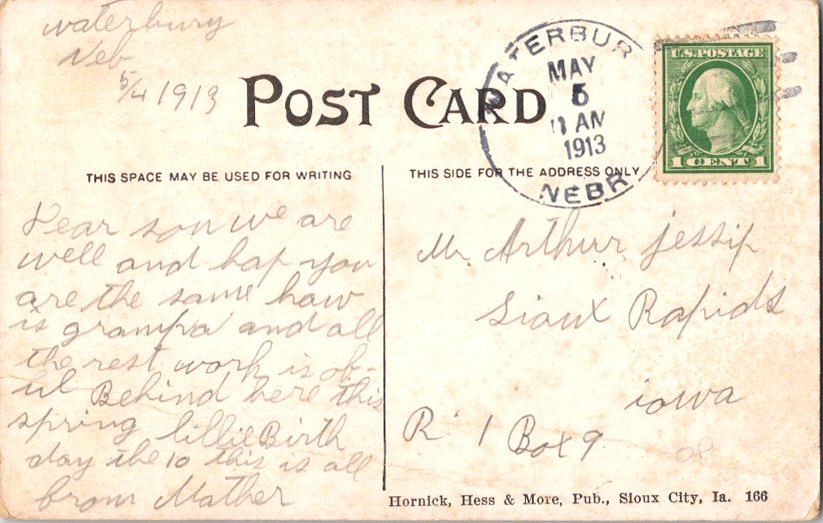 waterbury
Neb
5/4 1913
POST CARD
WATERBUR
MAY
5
11 AM
1913
NEBR
U.S. POSTAGE
1 CENT 1
THIS SPACE MAY BE USED FOR WRITING
THIS SIDE FOR THE ADDRESS ONLY
Dear son we are
well and hap you
are the same how
is grampa and all
the rest work is of-
ul Behind here this
spring lillie Birth
day the 10 this is all
from Mather
Mr. Arthur jessip
Sioux Rapids
iowa
R. 1 Box 9
Hornick, Hess & More, Pub., Sioux City, Ia. 166